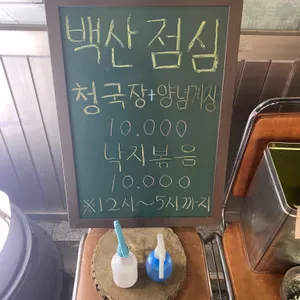 백산 점심
청국장+양념게장
10.000
낙지볶음
10.000
※12시~5시까지